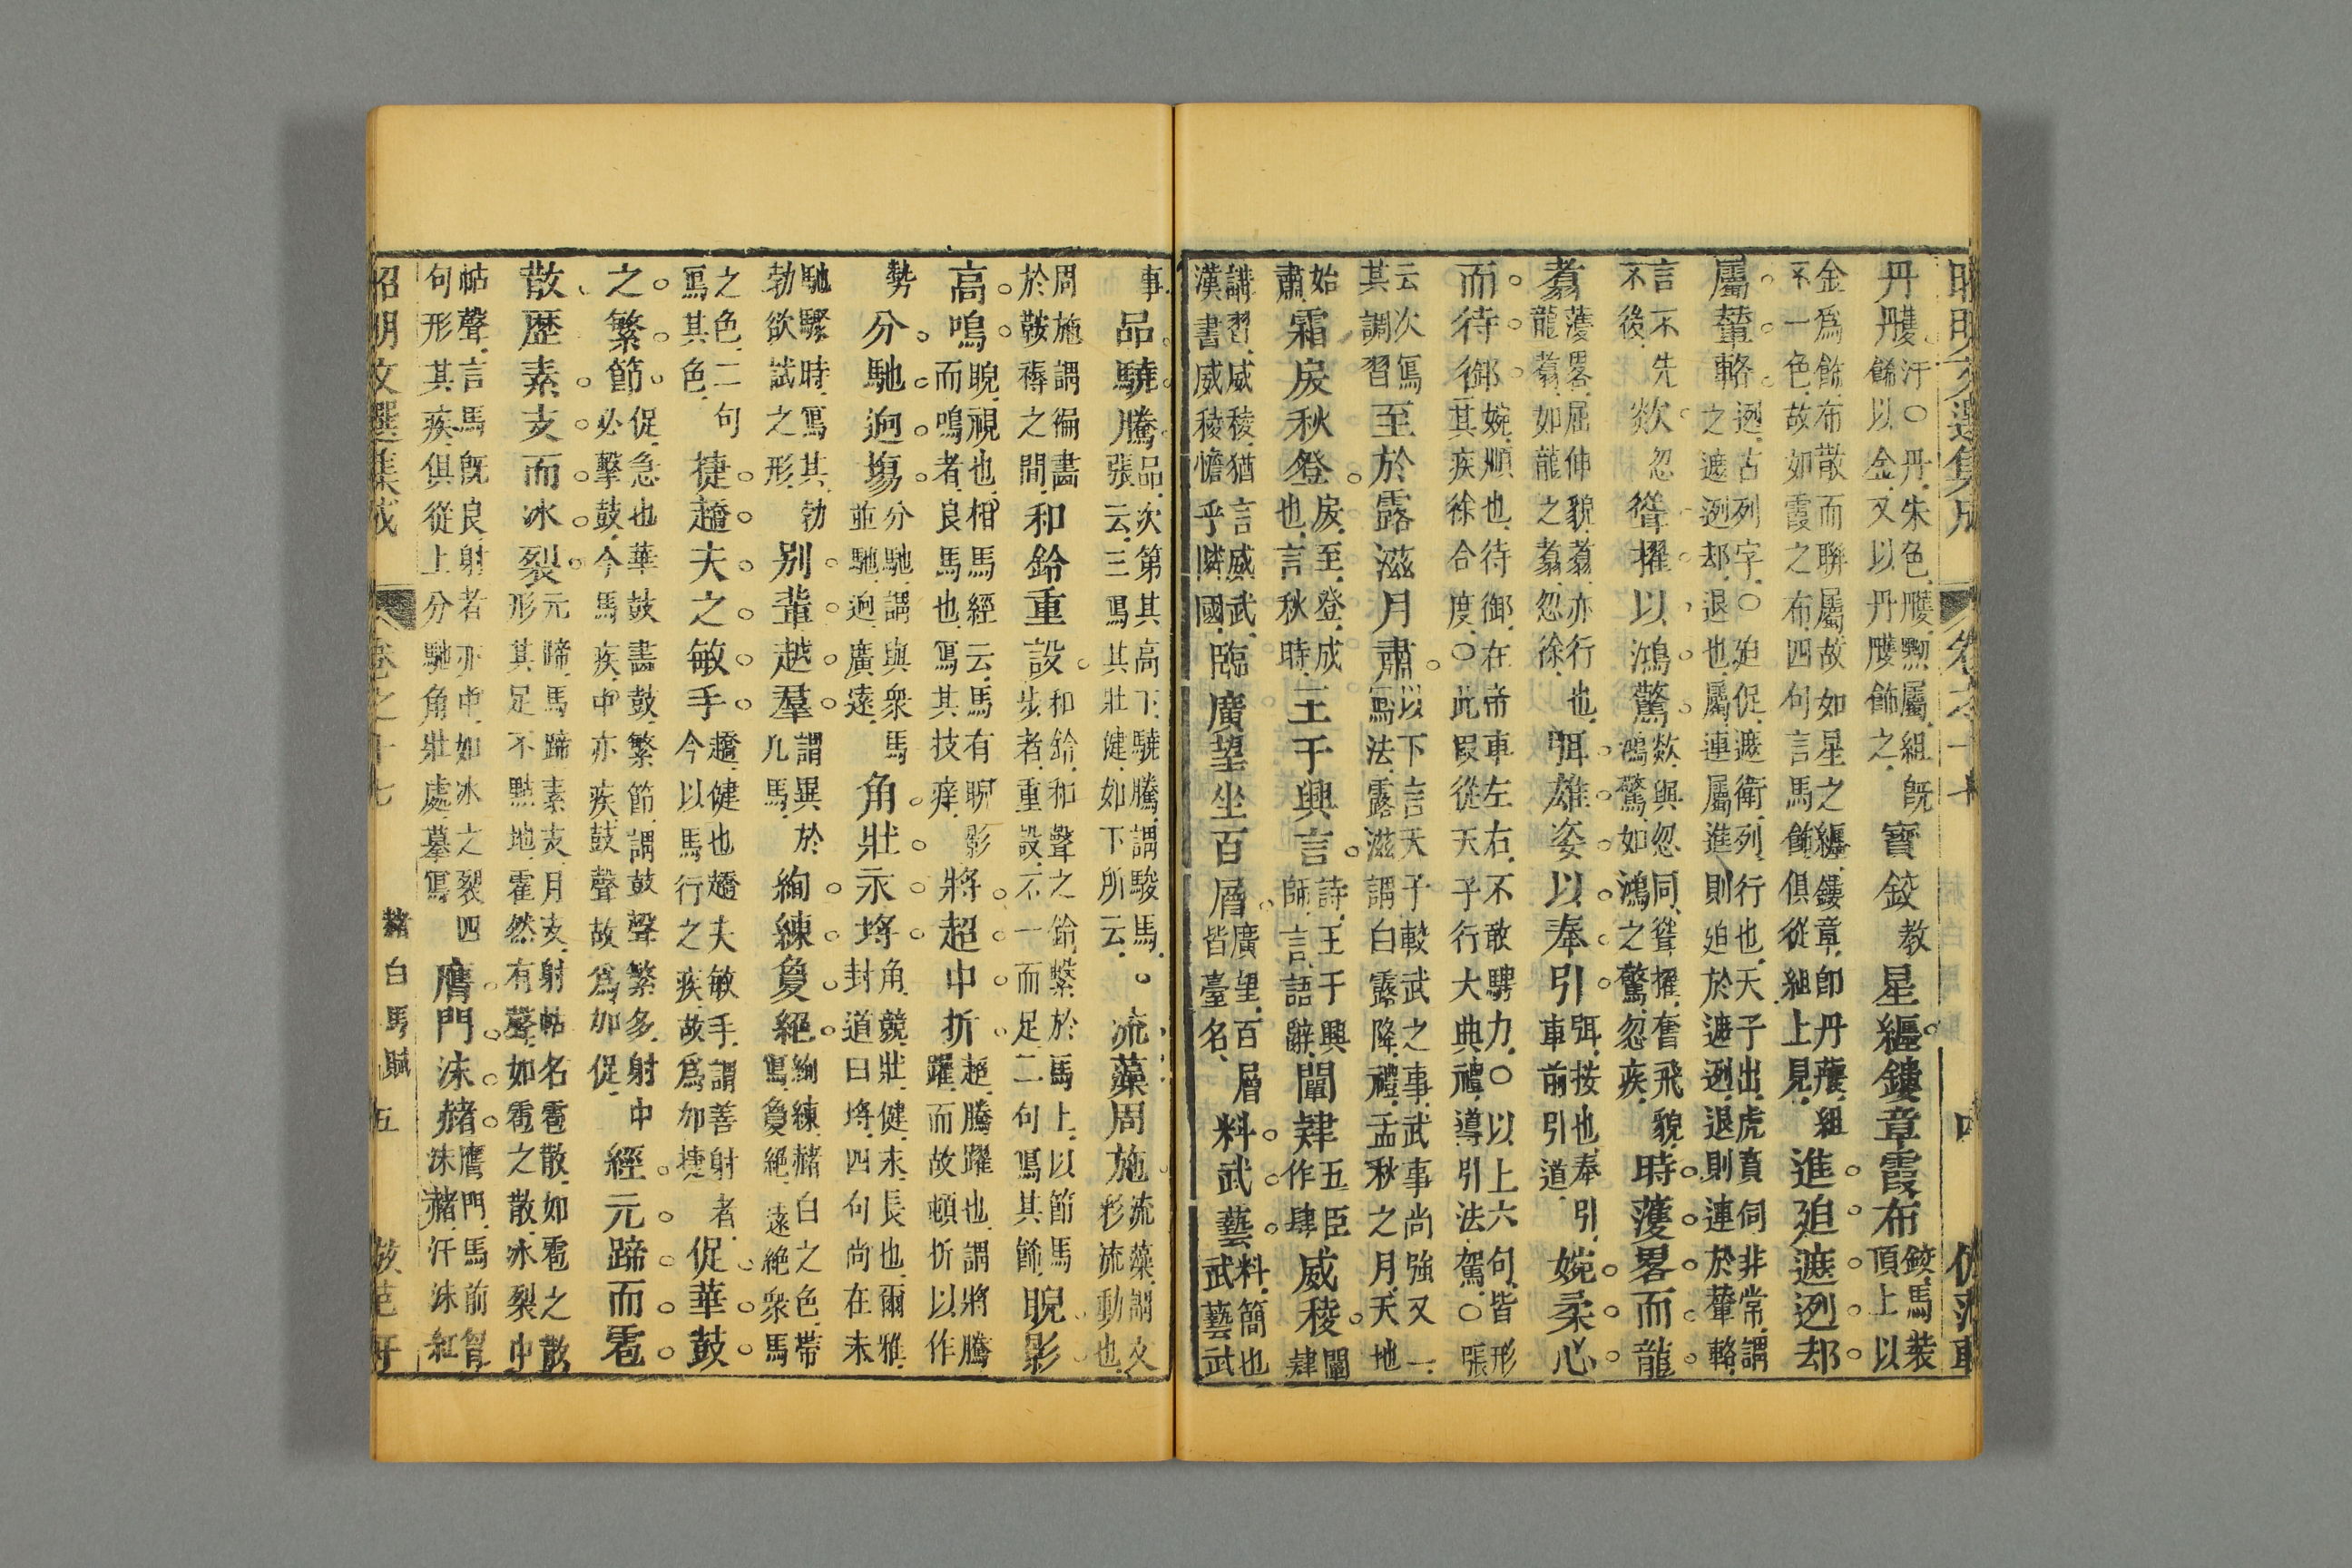 丹雘。汗〇丹朱色雘黝屬組既飾以金又以丹雘飾之寶鉸教星纏鏤章霞布鉸馬裝頂上以
金爲飾布散而聯屬故如星之纏鏤章卽丹雘組不一色故如霞之布四句言馬飾俱從組上見進廹遮迾却
屬輦輅。迾古列字〇廹促遮衛列行也天子出虎賁伺非常謂之遮迾却退也屬連屬進則廹於遮迾退則連於輦輅
言不先不後欻忽聳擢以鴻驚欻與忽同聳擢奮飛貌鴻驚如鴻之驚忽疾時濩畧而龍
翥濩畧屈伸貌翥亦行也龍翥如龍之翥忽徐弭雄姿以奉引弭按也奉引車前引道婉柔心
而待御婉順也待御在帝車左右不敢騁力〇以上六句皆形其疾徐合度〇此叚從天子行大典禮導引法駕〇張
云次寫其調習至於露滋月肅以下言天子較武之事武事尚強又一寫法露滋謂白露降禮孟秋之月天地
始肅霜戾秋登戾至登成也言秋時王于興言詩王于興師言語辭闡肄五臣作肆威稜闡肄
講習威稜猶言威武漢書威稜憺乎隣國臨廣望坐百層廣望百層皆臺名料武藝料簡也武藝武
事品驍騰品次第其高下驍騰謂駿馬張云三寫其壯健如下所云流藻周施流藻謂文彩流動也
周施謂徧畵於鞍褥之間和鈴重設和鈴和聲之鈴繫於馬上以節馬步者重設不一而足二句寫其飾睨影
高鳴睨視也相馬經云馬有睨影而鳴者良馬也寫其技痒將超中折超騰躍也謂將騰躍而故頓折以作
勢分馳迥塲分馳謂與衆馬並馳迥廣遠角壯永埒角競壯健永長也爾雅封道曰埒四句尚在未
馳驟時寫其勃勃欲試之形别輩越羣謂異於凡馬絢練夐絕絢練赭白之色帶寫夐絕遠絕衆馬
之色二句寫其色捷趫夫之敏手趫健也趫夫敏手謂善射者今以馬行之疾故爲加捷促華鼓
之繁節促急也華鼓畵鼓繁節謂鼓聲繁多射中必擊鼓今馬疾中亦疾鼓聲故爲加促經元蹄而雹
散歷素支而冰裂元蹄馬蹄素支月支射帖名雹散如雹之散形其足不㸃地霍然有聲如雹之散冰裂中
帖聲言馬旣良射者亦中如冰之裂四句形其疾俱從上分馳角壯處摹寫膺門沫赭膺門馬前胷沫赭汗沫紅
昭明文選集成 卷之十七 赭白馬賦 五